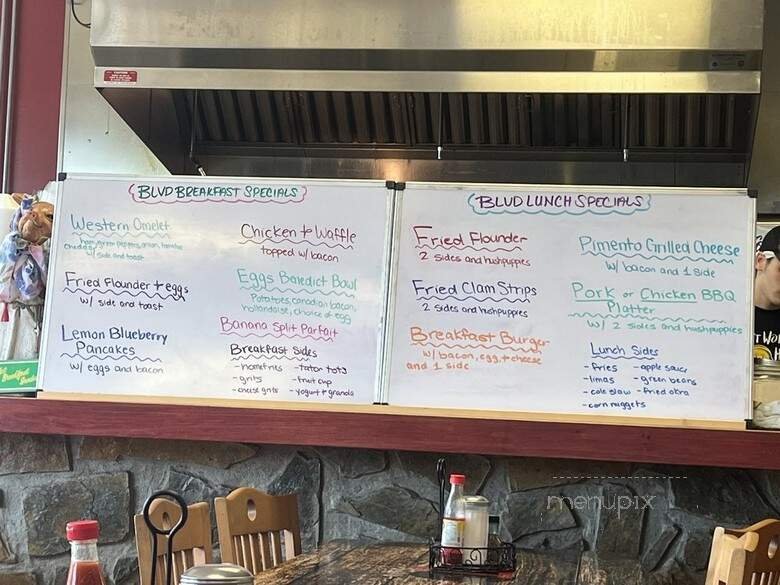 BLVD BREAKFAST SPECIALS
Western Omelet
ham, green peppers, onion, tomatoe
cheddar
w/ side and toast
Fried Flounder + eggs
w/ side and toast
Lemon Blueberry
Pancakes
w/ eggs and bacon
Chicken + Waffle
topped w/ bacon
Eggs Benedict Bowl
Potatoes, canadian bacon,
hollandaise, choice of egg
Banana Split Parfait
Breakfast Sides
- homefries
- grits
- cheese grits
- tator tots
- fruit cup
- yogurt + granola
BLVD LUNCH SPECIALS
Fried Flounder
2 sides and hushpuppies
Fried Clam Strips
2 sides and hushpuppies
Breakfast Burger
w/ bacon, egg, + cheese
and 1 side
Pimento Grilled Cheese
w/ bacon and 1 side
Pork or Chicken BBQ
Platter
w/ 2 sides and hushpuppies
Lunch Sides
- fries
- limas
- cole slaw
- corn nuggets
- apple sauce
- green beans
- fried okra
menupix